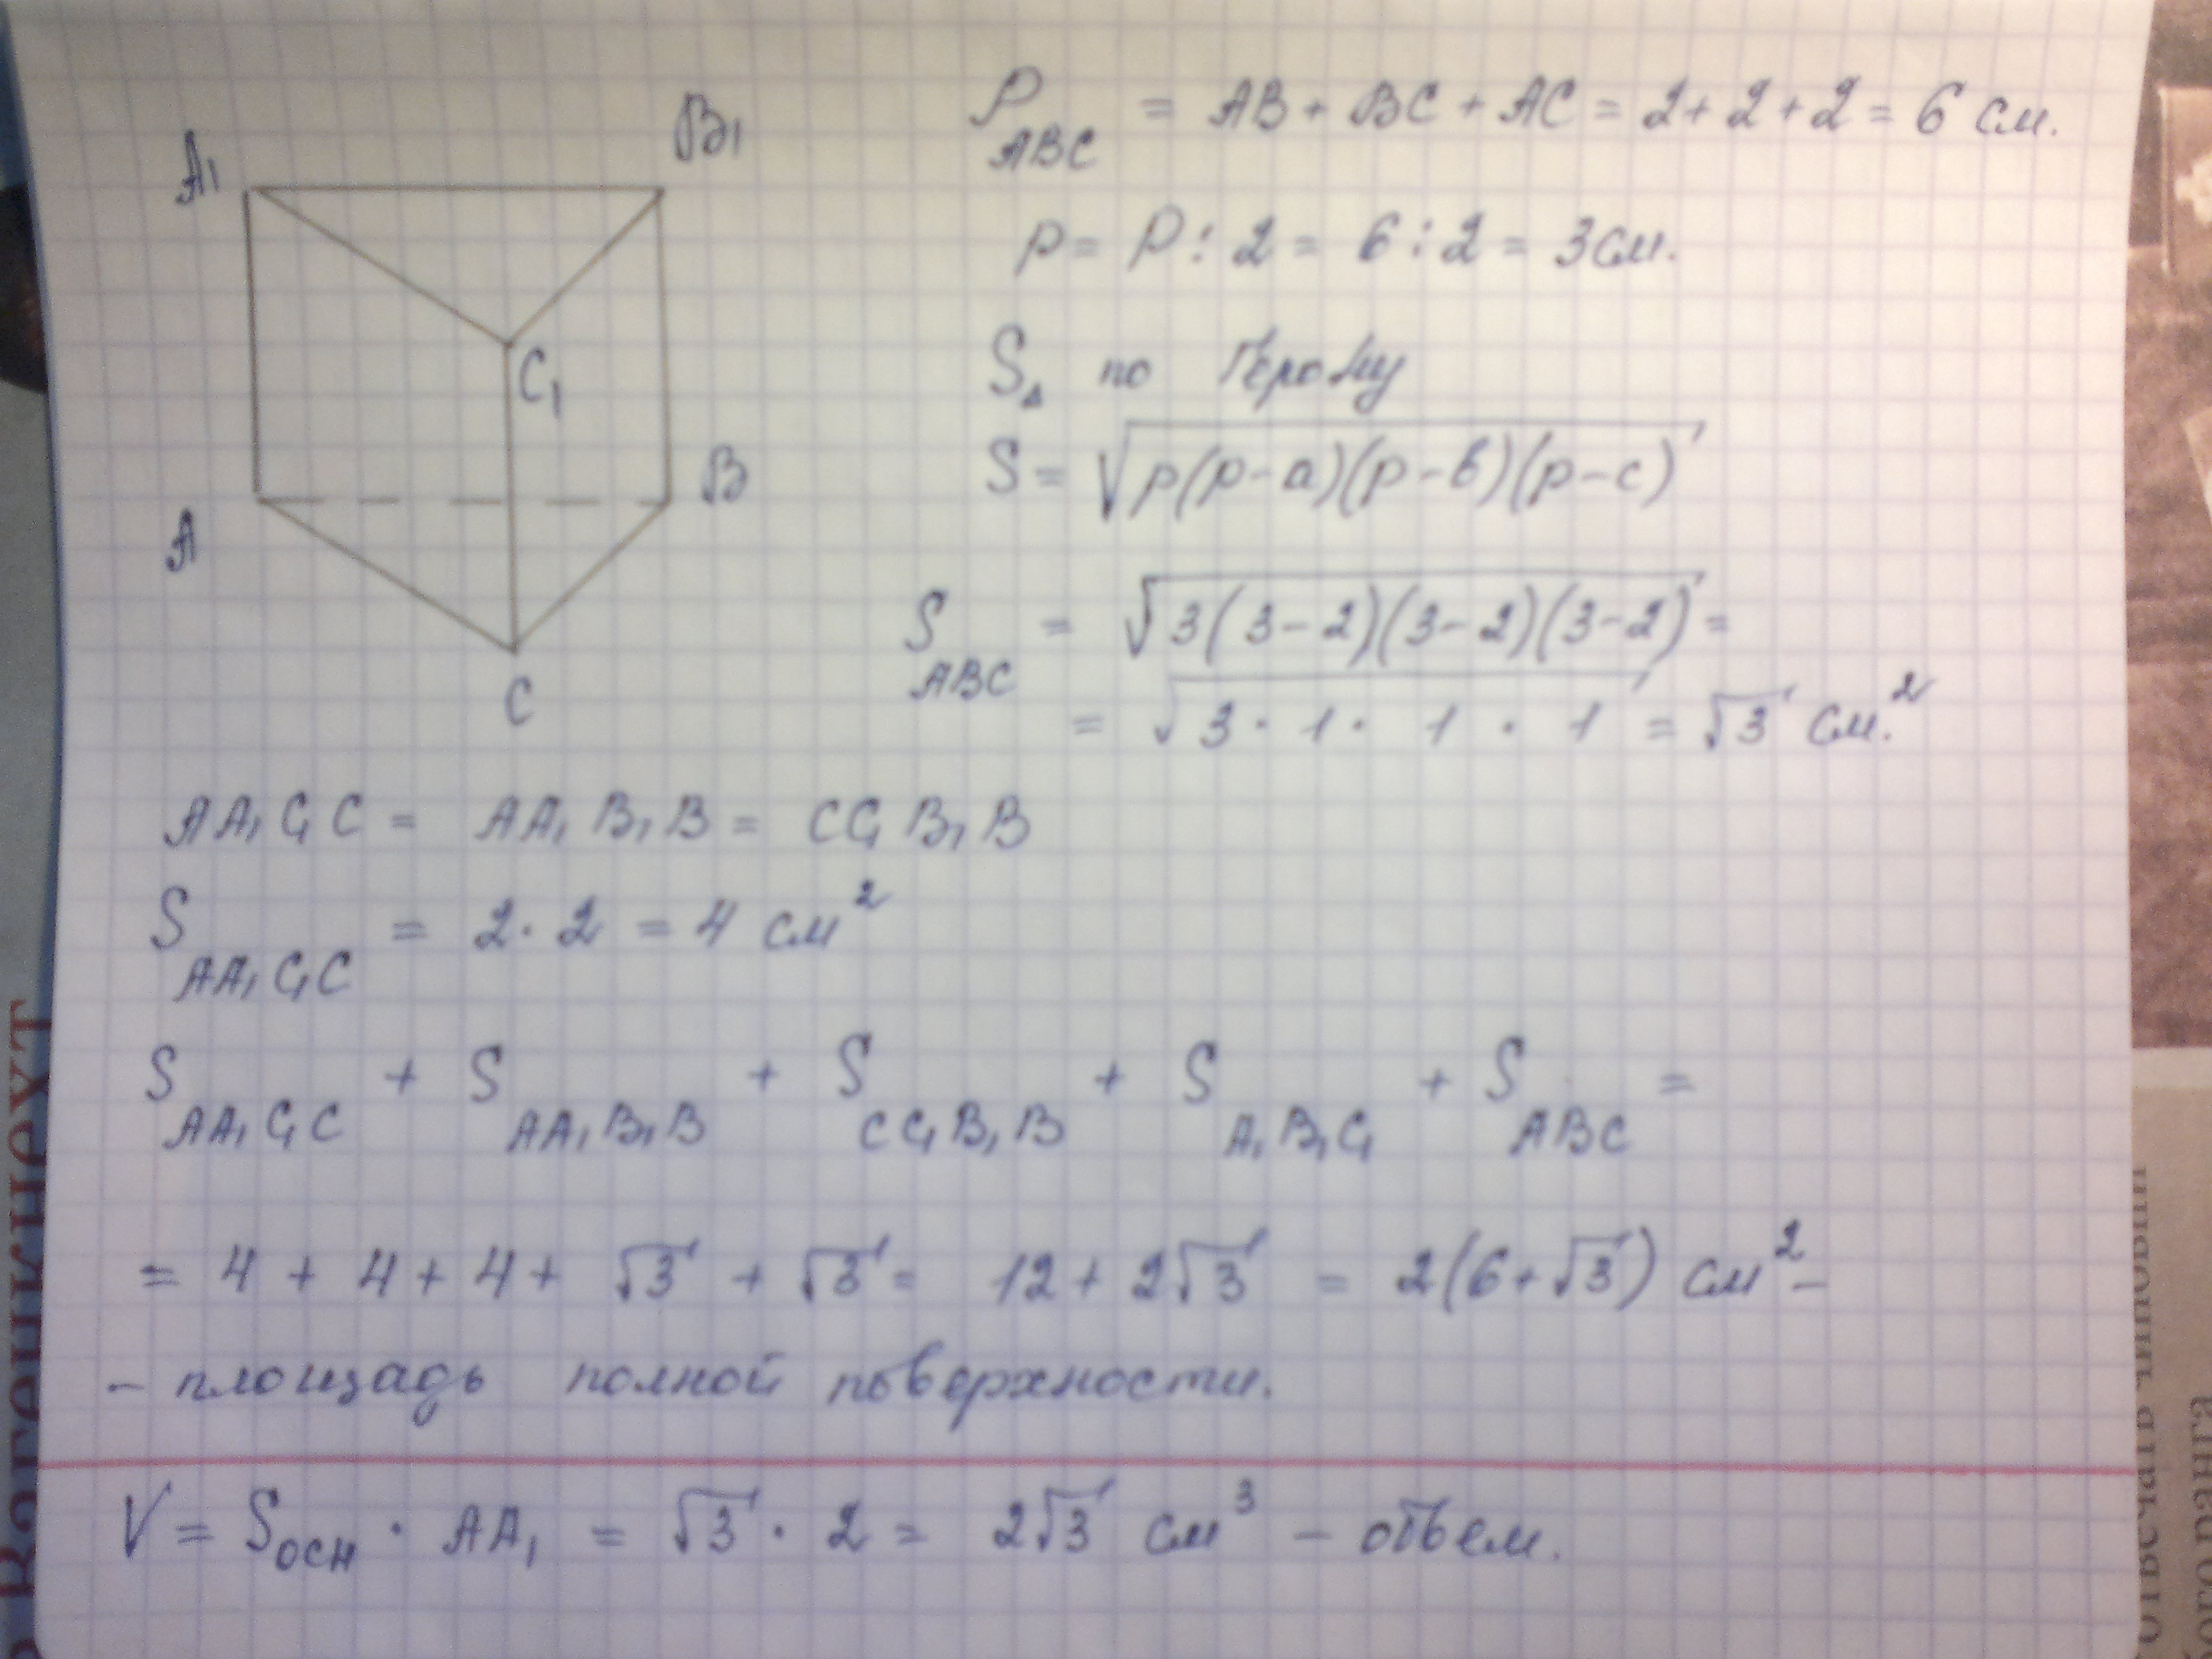 A₁
B₁
C₁
A
B
C
P ABC = AB + BC + AC = 2 + 2 + 2 = 6 см.
p = P : 2 = 6 : 2 = 3 см.
S△ по Герону
S = √p(p-a)(p-b)(p-c)
S ABC = √3(3-2)(3-2)(3-2) =
= √3 · 1 · 1 · 1 = √3 см.²
AA₁C₁C = AA₁B₁B = CC₁B₁B
S AA₁C₁C = 2 · 2 = 4 см²
S AA₁C₁C + S AA₁B₁B + S CC₁B₁B + S A₁B₁C₁ + S ABC =
= 4 + 4 + 4 + √3 + √3 = 12 + 2√3 = 2(6+√3) см² –
– площадь полной поверхности.
V = Sосн · AA₁ = √3 · 2 = 2√3 см³ – объем.
отвечать
ранга